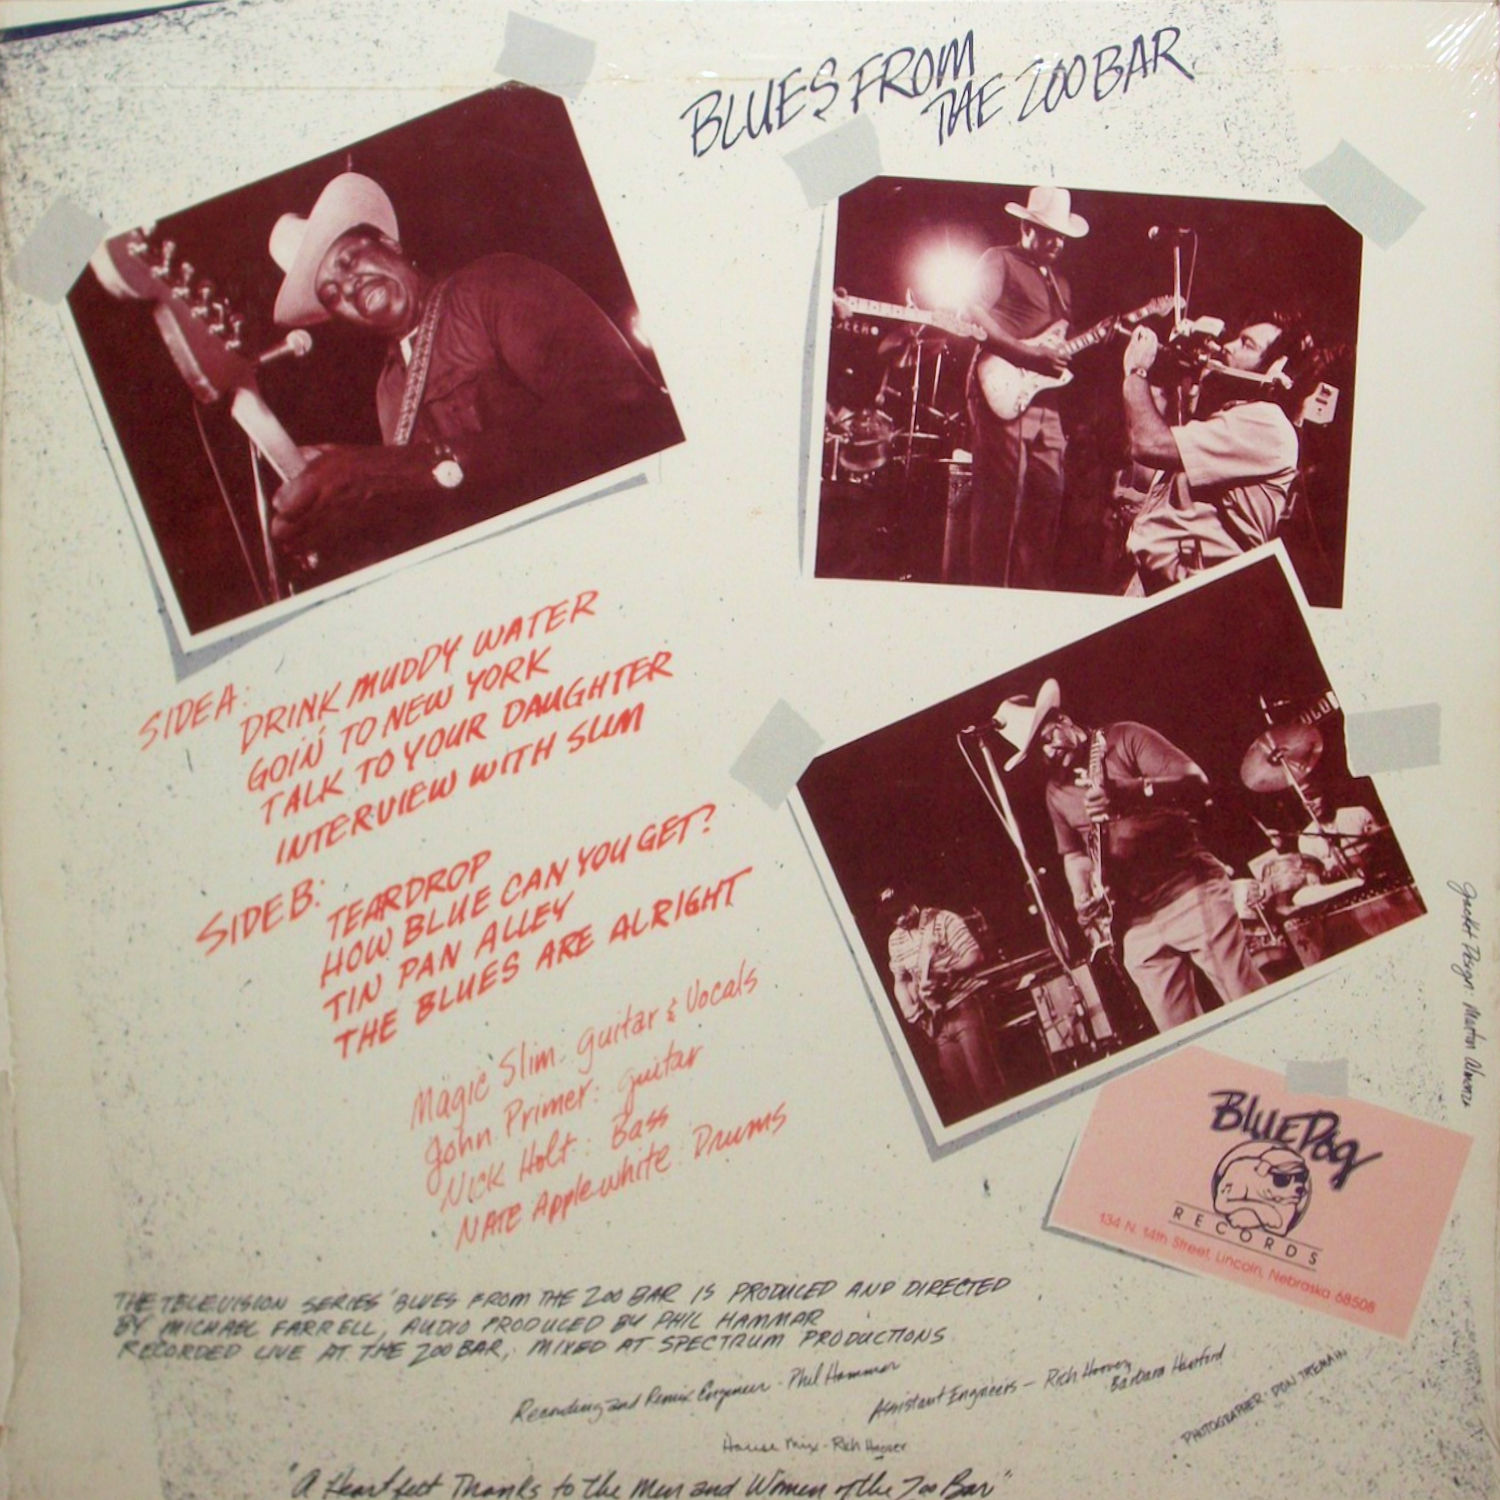 BLUES FROM
THE ZOO BAR
SIDE A:
DRINK MUDDY WATER
GOIN' TO NEW YORK
TALK TO YOUR DAUGHTER
INTERVIEW WITH SLIM
SIDE B:
TEARDROP
HOW BLUE CAN YOU GET?
TIN PAN ALLEY
THE BLUES ARE ALRIGHT
Magic Slim: guitar & Vocals
John Primer: guitar
Nick Holt: Bass
NATE Applewhite: Drums
BLUE DOG
RECORDS
134 N. 14th Street, Lincoln, Nebraska 68508
Jacket Design: Martin
THE TELEVISION SERIES 'BLUES FROM THE ZOO BAR IS PRODUCED AND DIRECTED
BY MICHAEL FARRELL, AUDIO PRODUCED BY PHIL HAMMAR
RECORDED LIVE AT THE ZOO BAR, MIXED AT SPECTRUM PRODUCTIONS
Recording and Remix Engineer - Phil Hammar
Assistant Engineers - Rich Hoover
Barbara
House Mix - Rich Hoover
PHOTOGRAPHER: DON TREMAIN
"A Heartfelt Thanks to the Men and Women of the Zoo Bar"